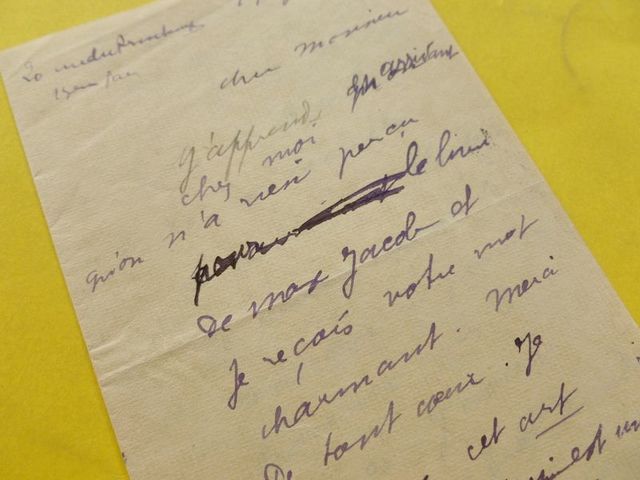 cher monsieur
J'apprends en arrivant
chez moi
qu'on n'a rien perçu
pour le livre
de max Jacob et
Je reçois votre mot
charmant. Merci
De tout cœur. Je
cet art